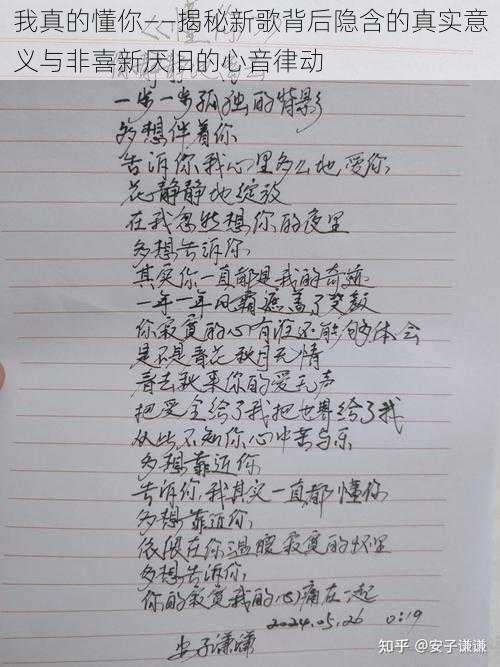 我真的懂你——揭秘新歌背后隐含的真实意
义与非喜新厌旧的心音律动
懂你
一步一步孤独的情影
多想伴着你
告诉你我心里多么地爱你
花静静地绽放
在我忽然想你的夜里
多想告诉你
其实你一直都是我的奇迹
一年一年风霜遮盖了笑颜
你寂寞的心有谁还能够体会
是不是春花秋月无情
春去秋来你的爱无声
把爱全给了我把世界给了我
从此不知你心中苦与乐
多想靠近你
告诉你我其实一直都懂你
多想靠近你
依偎在你温暖寂寞的怀里
多想告诉你
你的寂寞我的心痛在一起
2024.05.26 0:19
安子谦谦
知乎 @安子谦谦